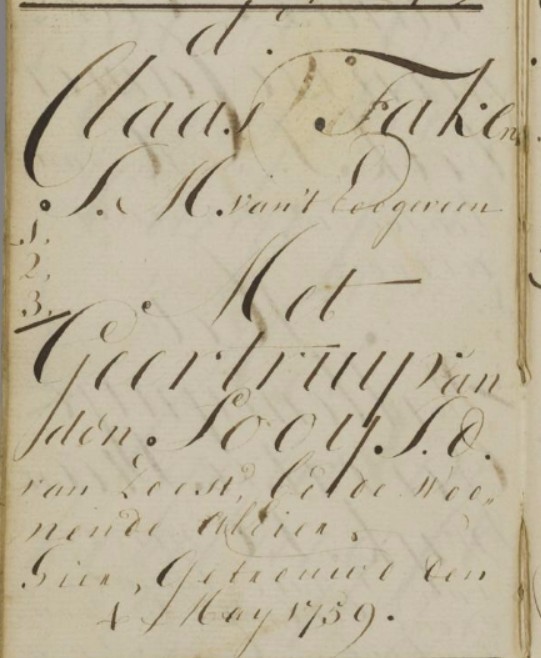 d:
Claas Faken
J. M. van't Hoogeveen
1.
2.
3. Met
Geertruy van
den Looy. J. d.
van Zoest, Beide Woo„
nende Alhier.
Hier, Getrouwd den
4 May 1759.